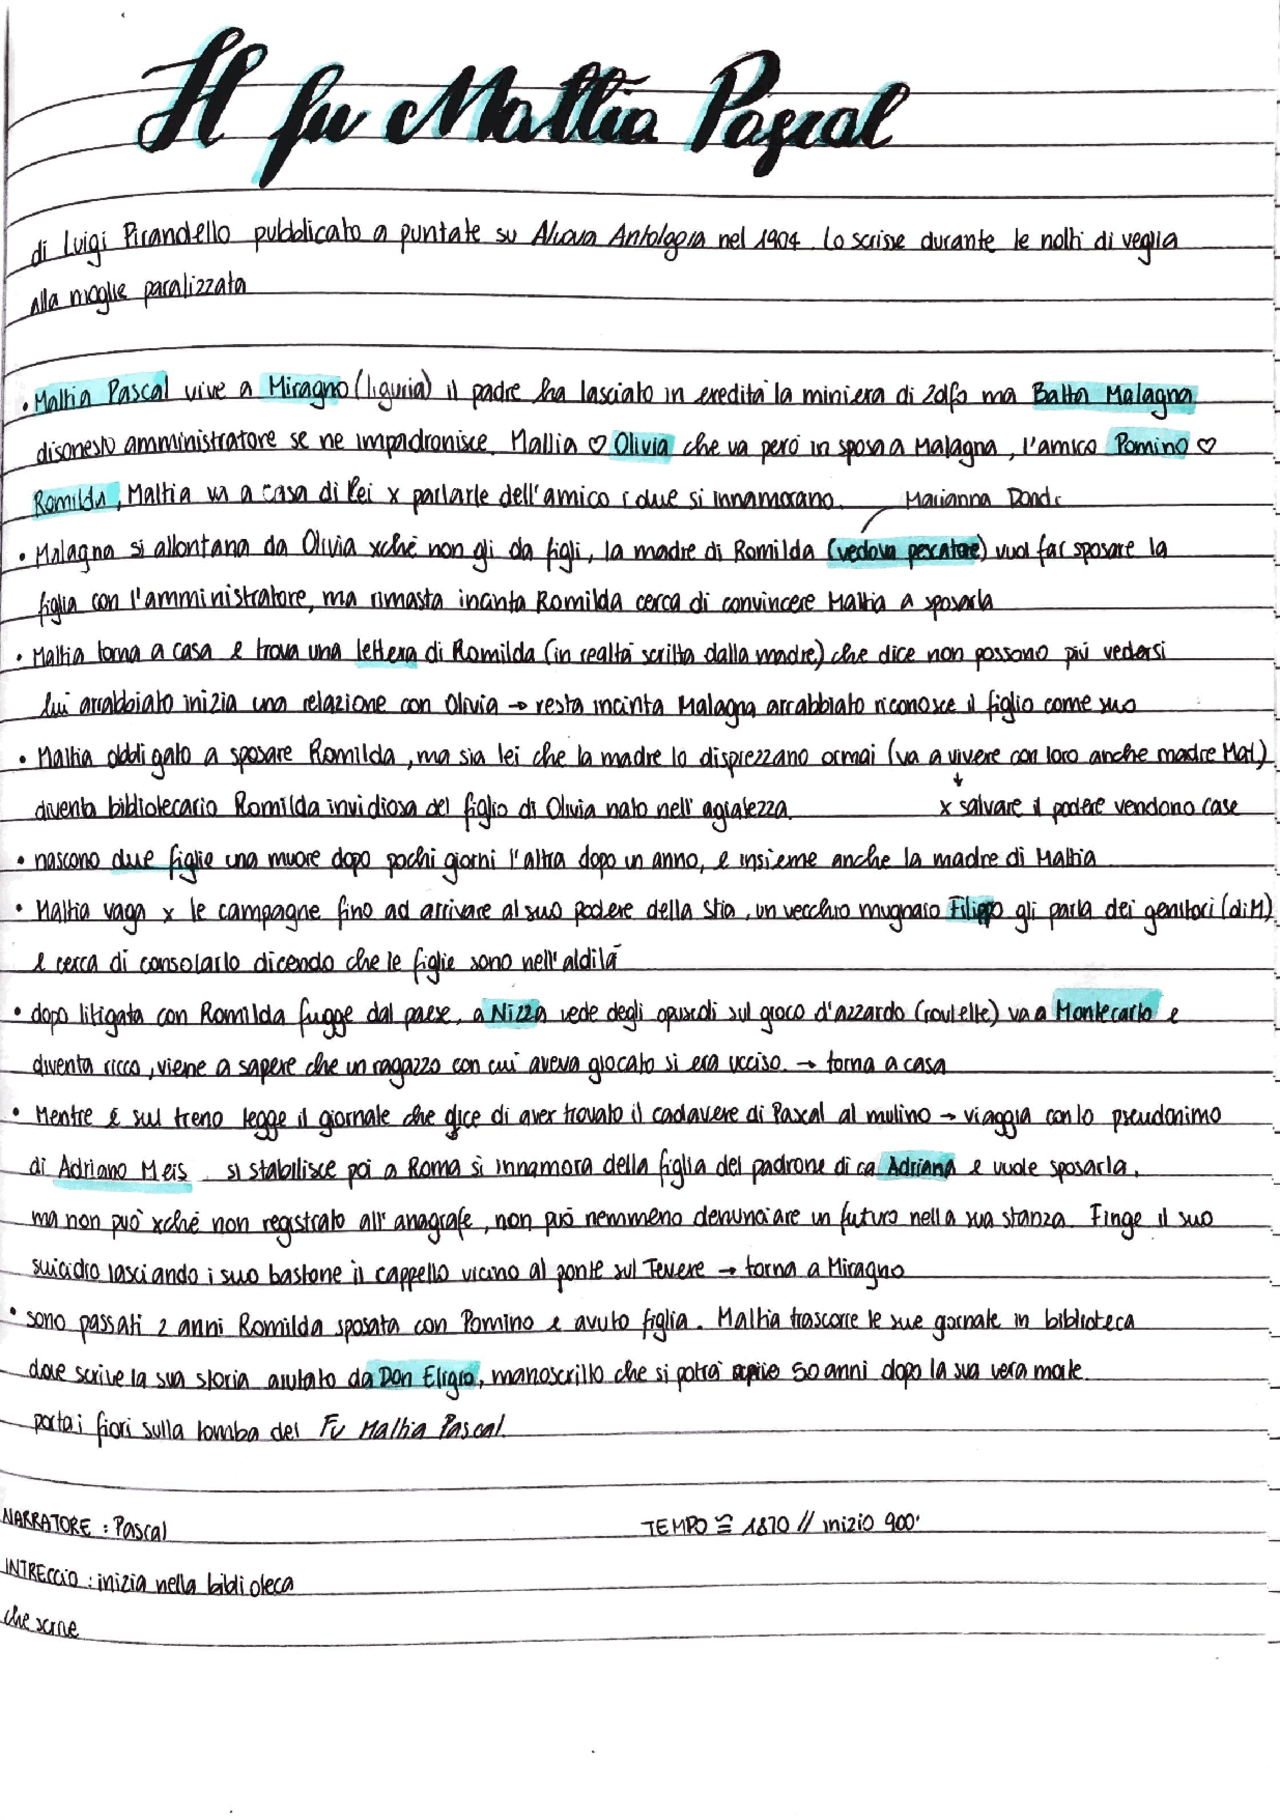 Il fu Mattia Pascal
di Luigi Pirandello pubblicato a puntate su Nuova Antologia nel 1904. Lo scrisse durante le notti di veglia
alla moglie paralizzata
• Mattia Pascal vive a Miragno (liguria) il padre ha lasciato in eredità la miniera di zolfo ma Batta Malagna
disonesto amministratore se ne impadronisce. Mattia ♡ Olivia che va però in sposa a Malagna, l'amico Pomino ♡
Romilda, Mattia va a casa di lei x parlarle dell'amico i due si innamorano. Marianna Dondi
• Malagna si allontana da Olivia xché non gli da figli, la madre di Romilda (vedova pescatore) vuol far sposare la
figlia con l'amministratore, ma rimasta incinta Romilda cerca di convincere Mattia a sposarla
• Mattia torna a casa e trova una lettera di Romilda (in realtà scritta dalla madre) che dice non possono più vedersi
lui arrabbiato inizia una relazione con Olivia → resta incinta Malagna arrabbiato riconosce il figlio come suo
• Mattia obbligato a sposare Romilda, ma sia lei che la madre lo disprezzano ormai (va a vivere con loro anche madre Mat)
diventa bibliotecario Romilda invidiosa del figlio di Olivia nato nell'agiatezza. ↓ x salvare il podere vendono case
• nascono due figlie una muore dopo pochi giorni l'altra dopo un anno, e insieme anche la madre di Mattia
• Mattia vaga x le campagne fino ad arrivare al suo podere della Stia, un vecchio mugnaio Filippo gli parla dei genitori (di M)
e cerca di consolarlo dicendo che le figlie sono nell'aldilà
• dopo litigata con Romilda fugge dal paese, a Nizza vede degli opuscoli sul gioco d'azzardo (roulette) va a Montecarlo e
diventa ricco, viene a sapere che un ragazzo con cui aveva giocato si era ucciso. → torna a casa
• Mentre è sul treno legge il giornale che dice di aver trovato il cadavere di Pascal al mulino → viaggia con lo pseudonimo
di Adriano Meis si stabilisce poi a Roma si innamora della figlia del padrone di ca Adriana e vuole sposarla,
ma non può xché non registrato all'anagrafe, non può nemmeno denunciare un futuro nella sua stanza. Finge il suo
suicidio lasciando i suo bastone il cappello vicino al ponte sul Tevere → torna a Miragno
• sono passati 2 anni Romilda sposata con Pomino e avuto figlia. Mattia trascorre le sue giornate in biblioteca
dove scrive la sua storia aiutato da Don Eligio, manoscritto che si potrà aprire 50 anni dopo la sua vera morte.
porta i fiori sulla tomba del Fu Mattia Pascal.
NARRATORE : Pascal TEMPO ≅ 1870 // inizio 900'
INTRECCIO : inizia nella biblioteca
che scrive